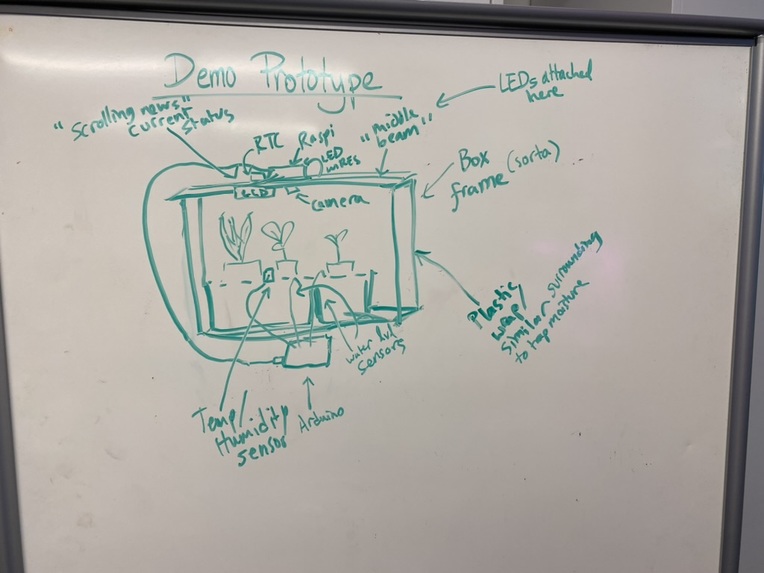 Demo Prototype
LEDs attached
here
"Scrolling news"
current
status
RTC
Raspi
LED
wires
"middle
beam"
Box
frame (sorta)
LCD
camera
Plastic
wrap/
similar surrounding
to trap moisture
water lvl
sensors
Temp/
Humidity
sensor
Arduino